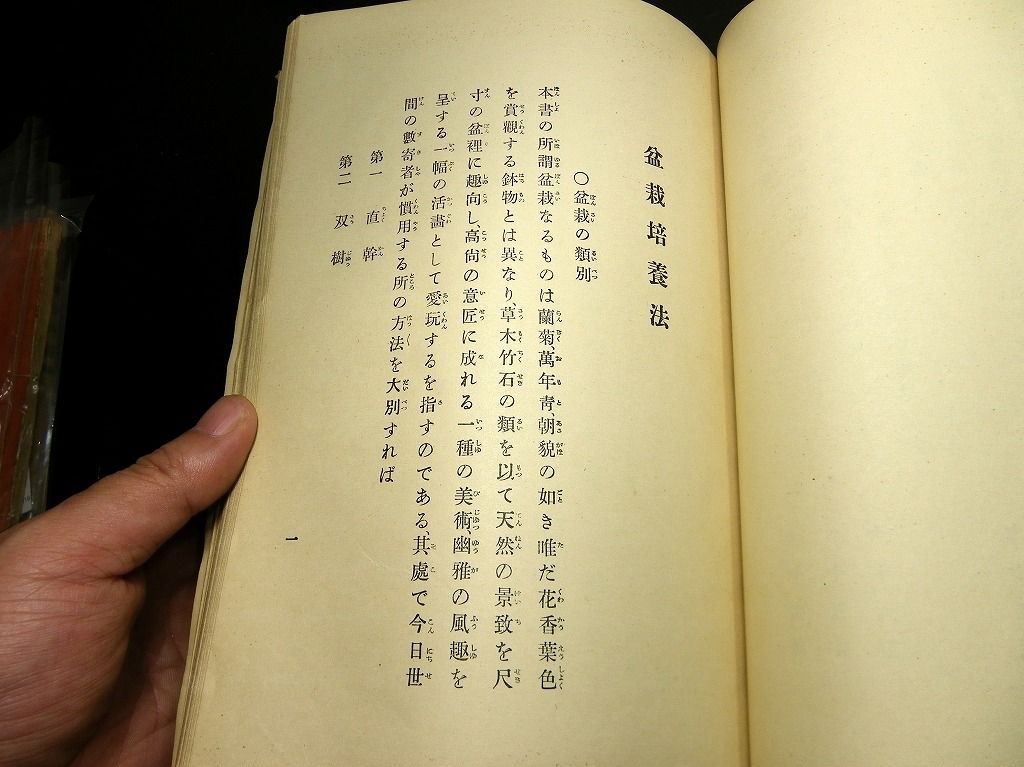 盆栽培養法
○盆栽の類別
本書の所謂盆栽なるものは蘭菊、萬年靑、朝貌の如き唯だ花香葉色
を賞觀する鉢物とは異なり、草木竹石の類を以て天然の景致を尺
寸の盆裡に趣向し、高尙の意匠に成れる一種の美術、幽雅の風趣を
呈する一幅の活畫として愛玩するを指すのである、其處で今日世
間の數寄者が慣用する所の方法を大別すれば
第一 直幹
第二 双樹
一